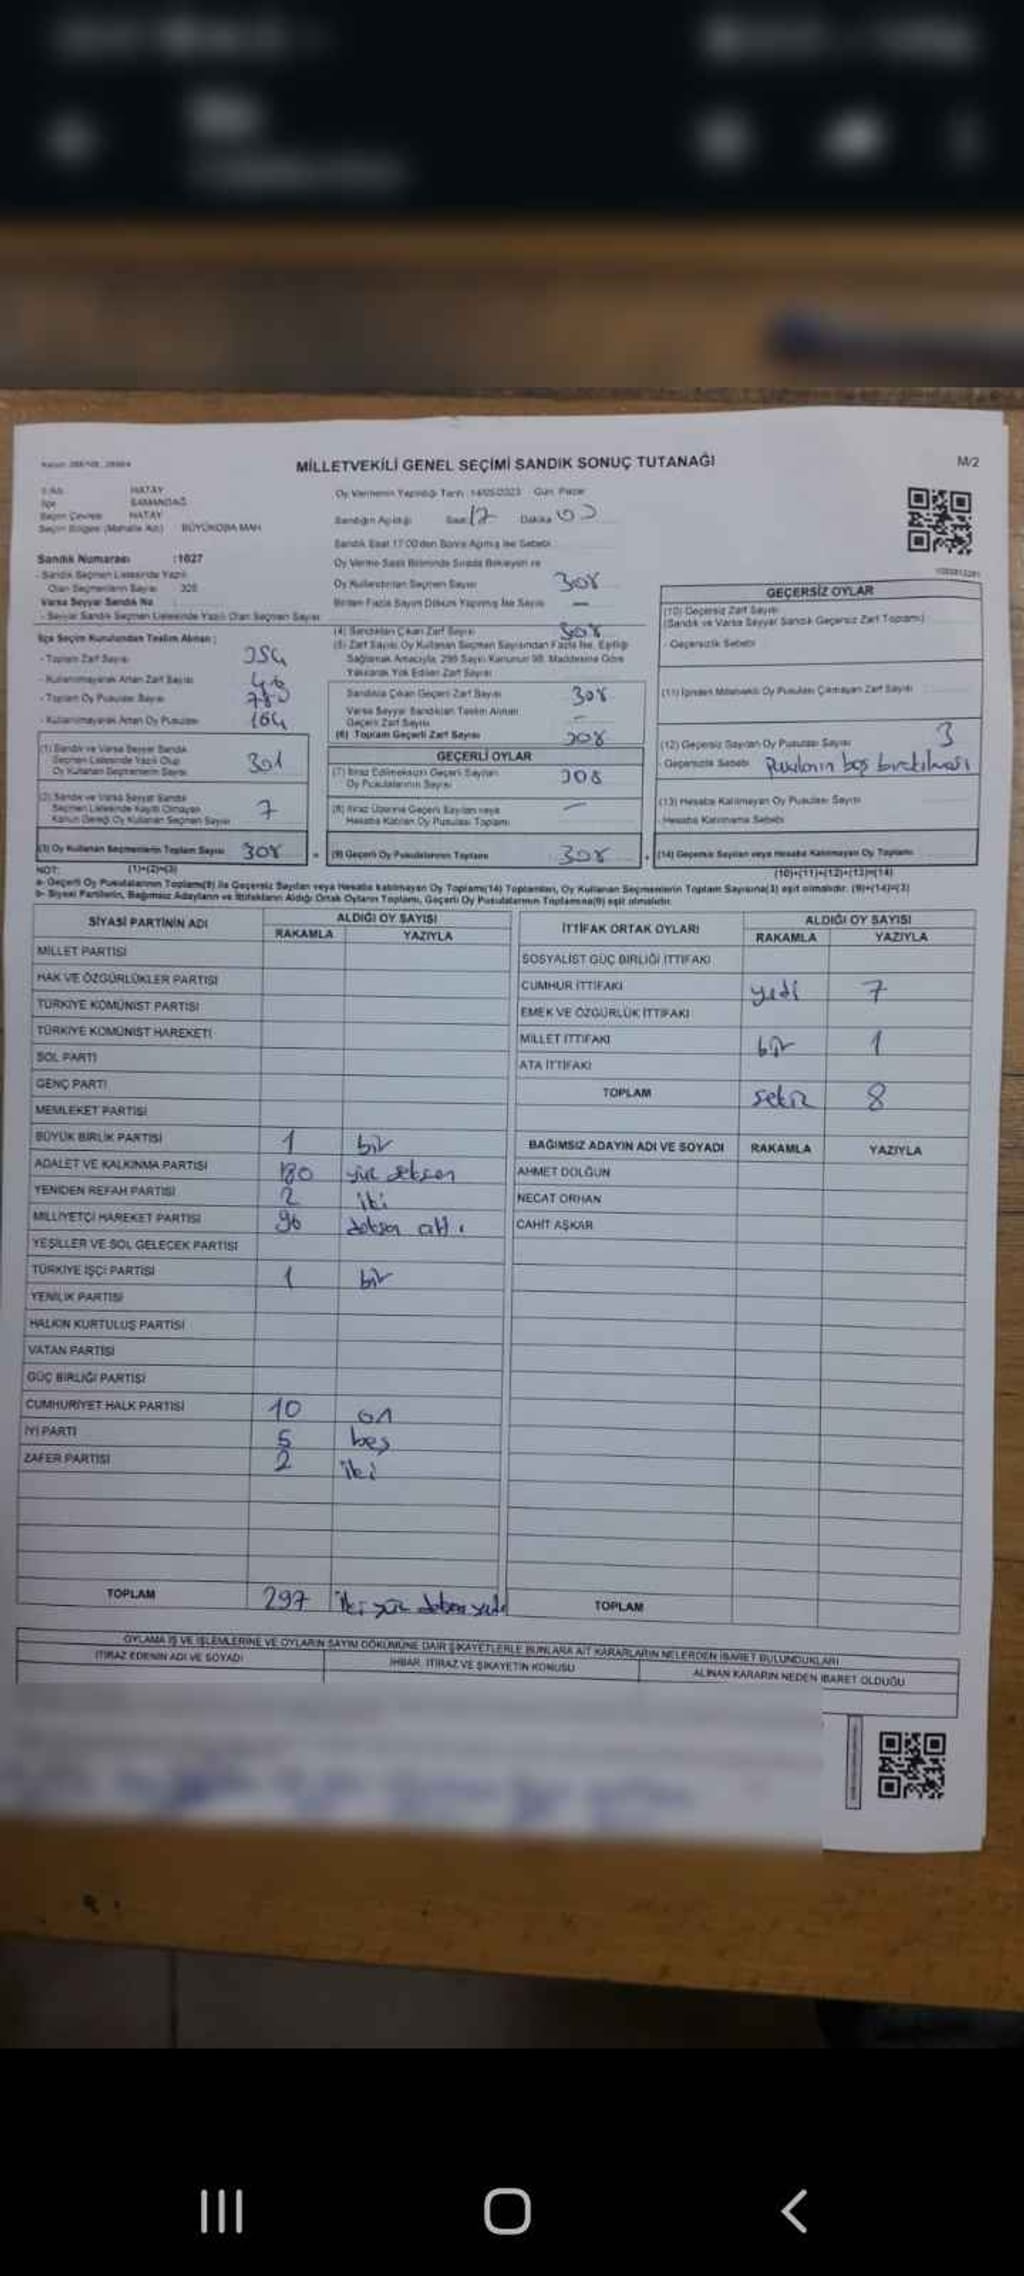 MİLLETVEKİLİ GENEL SEÇİMİ SANDIK SONUÇ TUTANAĞI
M/2
İli Adı HATAY
İlçe SAMANDAĞ
Seçim Çevresi HATAY
Seçim Bölgesi (Mahalle Adı) BÜYÜKOBA MAH
Oy Vermenin Yapıldığı Tarih 14/05/2023 Gün Pazar
Sandığın Açıldığı Saat 17 Dakika 00
Sandık Saat 17:00'den Sonra Açılmış İse Sebebi
Sandık Numarası :1027
- Sandık Seçmen Listesinde Yazılı
Olan Seçmenlerin Sayısı 328
Varsa Seyyar Sandık No
- Seyyar Sandık Seçmen Listesinde Yazılı Olan Seçmen Sayısı
Oy Kullandırılan Seçmen Sayısı 308
Birden Fazla Sayım Döküm Yapılmış İse Sayısı —
İlçe Seçim Kurulundan Teslim Alınan ;
- Toplam Zarf Sayısı
- Kullanılmayarak Artan Zarf Sayısı
- Toplam Oy Pusulası Sayısı
- Kullanılmayarak Artan Oy Pusulası
(1) Sandık ve Varsa Seyyar Sandık
Seçmen Listesinde Yazılı Olup
Oy Kullanan Seçmenlerin Sayısı 301
(2) Sandık ve Varsa Seyyar Sandık
Seçmen Listesinde Kayıtlı Olmayan
Kanun Gereği Oy Kullanan Seçmen Sayısı 7
(3) Oy Kullanan Seçmenlerin Toplam Sayısı 308
(1)+(2)=(3)
(4) Sandıktan Çıkan Zarf Sayısı 308
(5) Zarf Sayısı Oy Kullanan Seçmen Sayısından Fazla İse, Eşitliği
Sağlamak Amacıyla, 298 Sayılı Kanunun 98. Maddesine Göre
Yakılarak Yok Edilen Zarf Sayısı
Sandıkta Çıkan Geçerli Zarf Sayısı 308
Varsa Seyyar Sandıktan Teslim Alınan
Geçerli Zarf Sayısı -
(6) Toplam Geçerli Zarf Sayısı 308
GEÇERLİ OYLAR
(7) İtiraz Edilmeksizin Geçerli Sayılan
Oy Pusulalarının Sayısı 308
(8) İtiraz Üzerine Geçerli Sayılan veya
Hesaba Katılan Oy Pusulası Toplamı —
(9) Geçerli Oy Pusulalarının Toplamı 308
GEÇERSİZ OYLAR
(10) Geçersiz Zarf Sayısı
(Sandık ve Varsa Seyyar Sandık Geçersiz Zarf Toplamı)
- Geçersizlik Sebebi
(11) İçinden Milletvekili Oy Pusulası Çıkmayan Zarf Sayısı
(12) Geçersiz Sayılan Oy Pusulası Sayısı 3
- Geçersizlik Sebebi Pusulanın boş bırakılması
(13) Hesaba Katılmayan Oy Pusulası Sayısı
- Hesaba Katılmama Sebebi
(14) Geçersiz Sayılan veya Hesaba Katılmayan Oy Toplamı
(10)+(11)+(12)+(13)=(14)
NOT:
a- Geçerli Oy Pusulalarının Toplamı(9) ile Geçersiz Sayılan veya Hesaba katılmayan Oy Toplamı(14) Toplamları, Oy Kullanan Seçmenlerin Toplam Sayısına(3) eşit olmalıdır. (9)+(14)=(3)
b- Siyasi Partilerin, Bağımsız Adayların ve İttifakların Aldığı Ortak Oyların Toplamı, Geçerli Oy Pusulalarının Toplamına(9) eşit olmalıdır.
SİYASİ PARTİNİN ADI ALDIĞI OY SAYISI
RAKAMLA YAZIYLA
MİLLET PARTİSİ
HAK VE ÖZGÜRLÜKLER PARTİSİ
TÜRKİYE KOMÜNİST PARTİSİ
TÜRKİYE KOMÜNİST HAREKETİ
SOL PARTİ
GENÇ PARTİ
MEMLEKET PARTİSİ
BÜYÜK BİRLİK PARTİSİ 1 bir
ADALET VE KALKINMA PARTİSİ 180 yüz seksen
YENİDEN REFAH PARTİSİ 2 iki
MİLLİYETÇİ HAREKET PARTİSİ 96 doksan altı
YEŞİLLER VE SOL GELECEK PARTİSİ
TÜRKİYE İŞÇİ PARTİSİ 1 bir
YENİLİK PARTİSİ
HALKIN KURTULUŞ PARTİSİ
VATAN PARTİSİ
GÜÇ BİRLİĞİ PARTİSİ
CUMHURİYET HALK PARTİSİ 10 on
İYİ PARTİ 5 beş
ZAFER PARTİSİ 2 iki
TOPLAM 297 iki yüz doksan yedi
İTTİFAK ORTAK OYLARI ALDIĞI OY SAYISI
RAKAMLA YAZIYLA
SOSYALİST GÜÇ BİRLİĞİ İTTİFAKI
CUMHUR İTTİFAKI yedi 7
EMEK VE ÖZGÜRLÜK İTTİFAKI
MİLLET İTTİFAKI bir 1
ATA İTTİFAKI
TOPLAM sekiz 8
BAĞIMSIZ ADAYIN ADI VE SOYADI RAKAMLA YAZIYLA
AHMET DOLĞUN
NECAT ORHAN
CAHİT AŞKAR
TOPLAM
OYLAMA İŞ VE İŞLEMLERİNE VE OYLARIN SAYIM DÖKÜMÜNE DAİR ŞİKAYETLERLE BUNLARA AİT KARARLARIN NELERDEN İBARET BULUNDUKLARI
İTİRAZ EDENİN ADI VE SOYADI
İHBAR, İTİRAZ VE ŞİKAYETİN KONUSU
ALINAN KARARIN NEDEN İBARET OLDUĞU